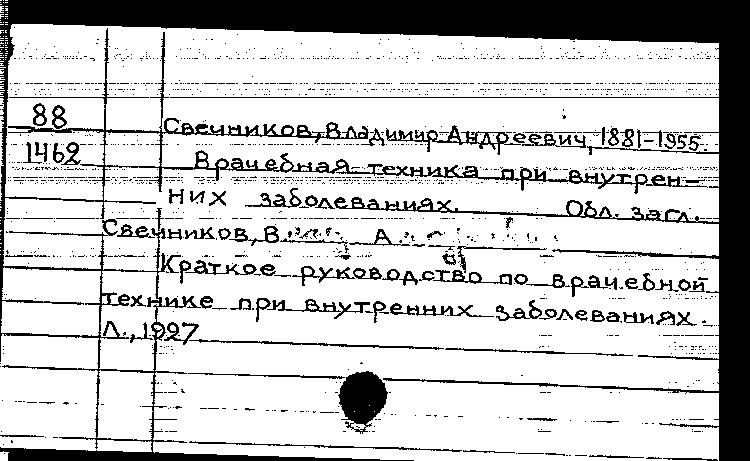 88
Свечников, Владимир Андреевич, 1881-1955.
1462
Врачебная техника при внутрен-
них заболеваниях. Обл. загл.
Свечников, В. А.
Краткое руководство по врачебной
технике при внутренних заболеваниях.
Л., 1927.